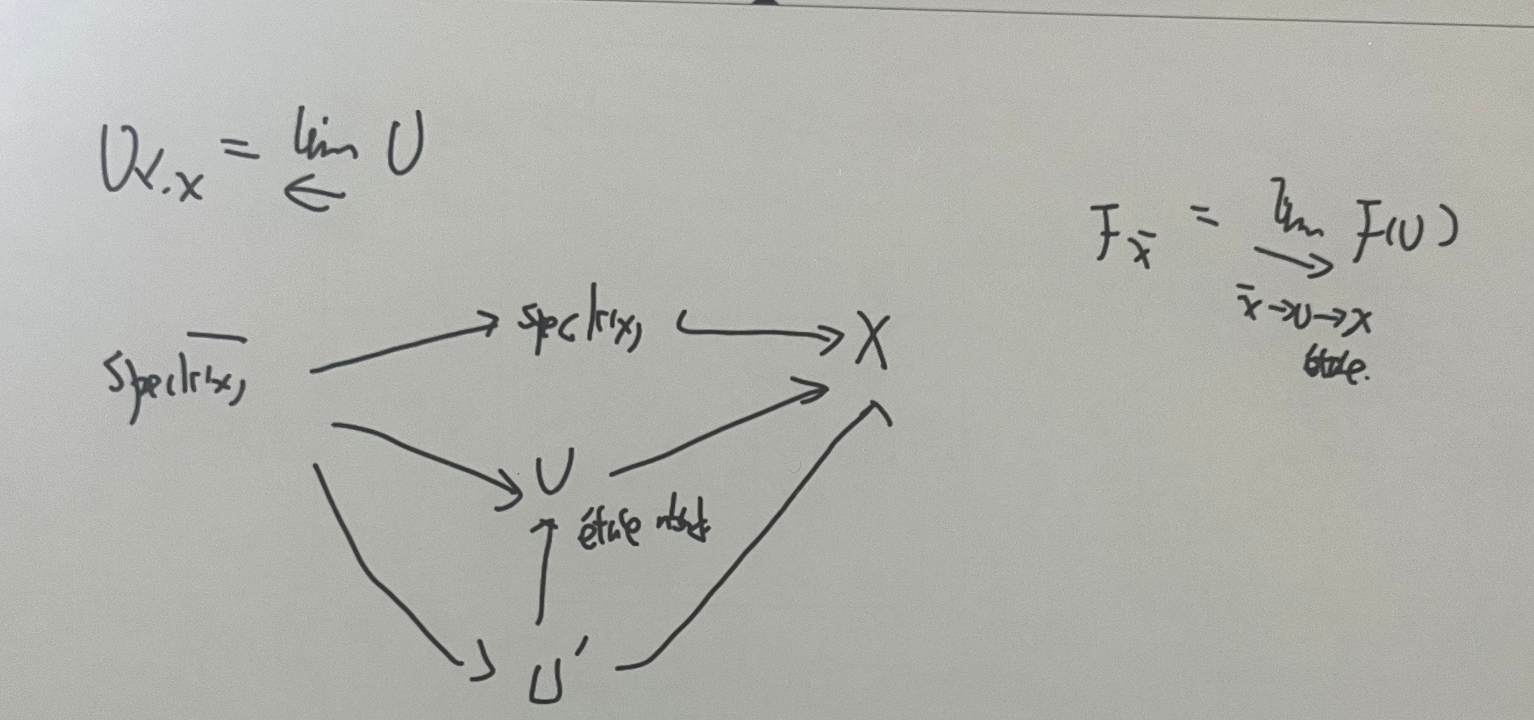 O_{X,x} = \varprojlim U
F_{\bar{x}} = \varinjlim F(U)
\bar{x} → U → X
étale.
Spec \overline{k(x)} → Spec k(x) ↪ X
U
étale nbd
U'